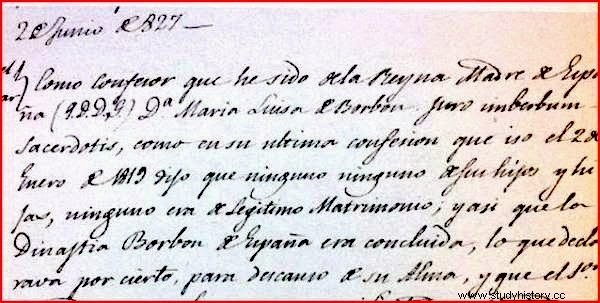 2 de Junio de 1827 —
Como confesor que he sido de la Reyna Madre de Espa
ña (q.D.D.g) Dª Maria Luisa de Borbon. Juro imberbum
Sacerdotis, como en su ultima confesion que iso el 2 de
Enero de 1819 dijo que ninguno ninguno de sus hijos y hi
jas, ninguno era de legitimo Matrimonio; y asi que la
Dinastia Borbon de España era concluida, lo que decla
rava por cierto, para descanso de su Alma, y que el S.or
www.studyhistory.cc